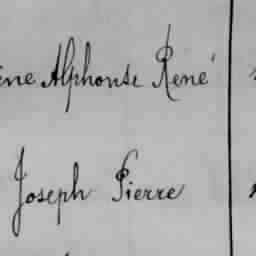 Alphonse René
Joseph Pierre